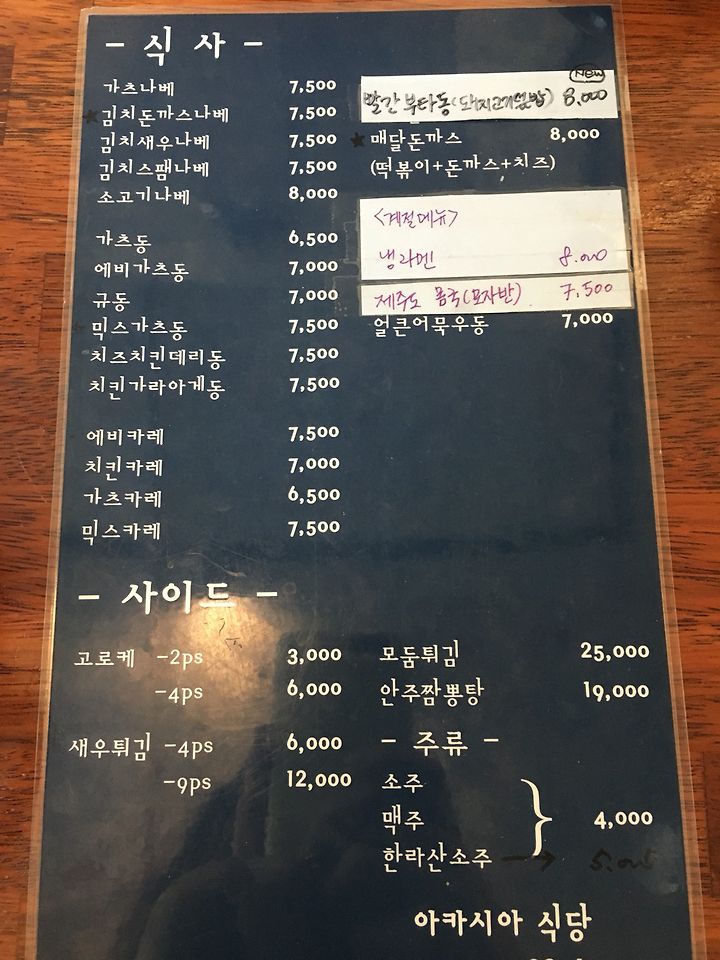 - 식 사 -
가츠나베 7,500
★김치돈까스나베 7,500
김치새우나베 7,500
김치스팸나베 7,500
소고기나베 8,000
가츠동 6,500
에비가츠동 7,000
규동 7,000
믹스가츠동 7,500
치즈치킨데리동 7,500
치킨가라아게동 7,500
에비카레 7,500
치킨카레 7,000
가츠카레 6,500
믹스카레 7,500
New
빨간 부타동(돼지고기덮밥) 8,000
★매달돈까스 8,000
(떡볶이+돈까스+치즈)
<계절메뉴>
냉라멘 8.000
제주도 몸국(모자반) 7,500
얼큰어묵우동 7,000
- 사이드 -
고로케 -2ps 3,000
-4ps 6,000
새우튀김 -4ps 6,000
-9ps 12,000
모둠튀김 25,000
안주짬뽕탕 19,000
- 주류 -
소주
맥주 } 4,000
한라산소주 → 5.000
아카시아 식당